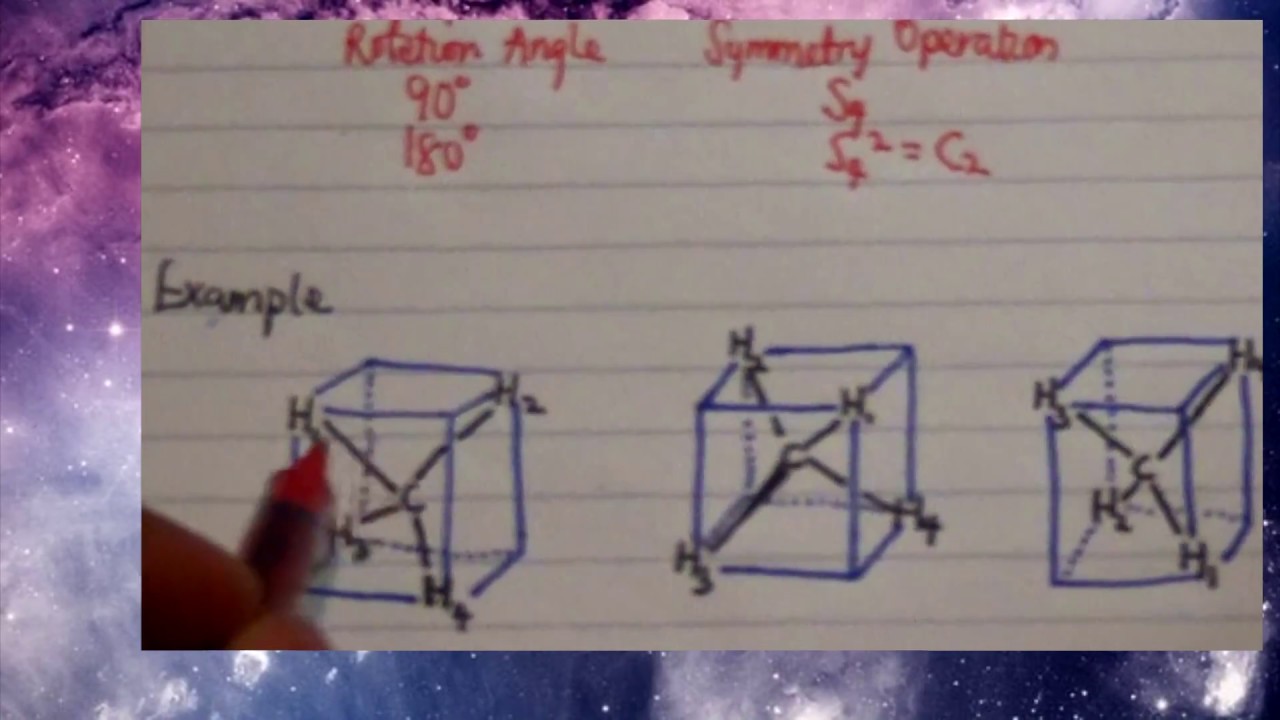 Rotation Angle Symmetry Operation
90° S4
180° S4² = C2
Example
H2 H2 H1 H3
C C C
H3 H3 H4 H2
H4 H1